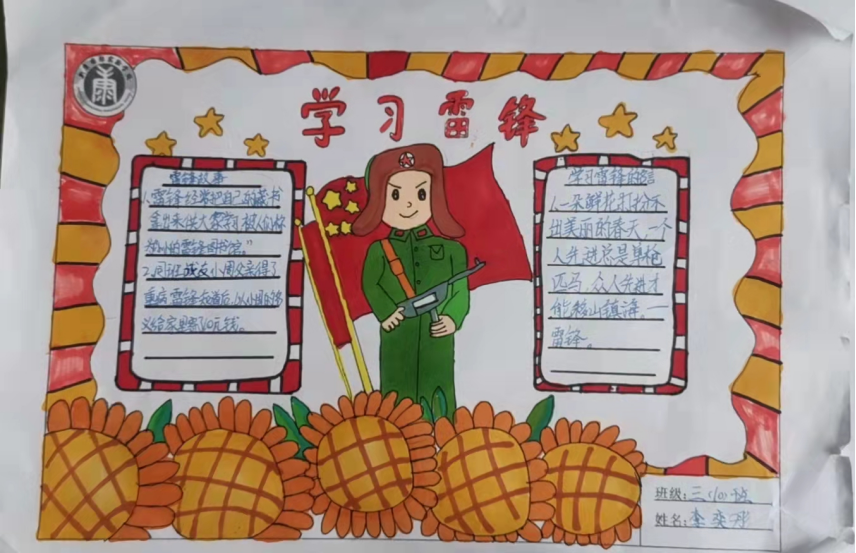 学习雷锋
雷锋故事
1.雷锋经常把自己的藏书
拿出来供大家学习,被人们称
为"小的雷锋图书馆。"
2.同班战友小周父亲得了
重病,雷锋知道后,以小周的名
义给家里寄了10元钱。
学习雷锋的
人一朵鲜花打扮不
出美丽的春天,一个
人先进总是单枪
匹马,众人先进才
能移山填海。一
雷锋。
班级:三(10)班
姓名:李奕